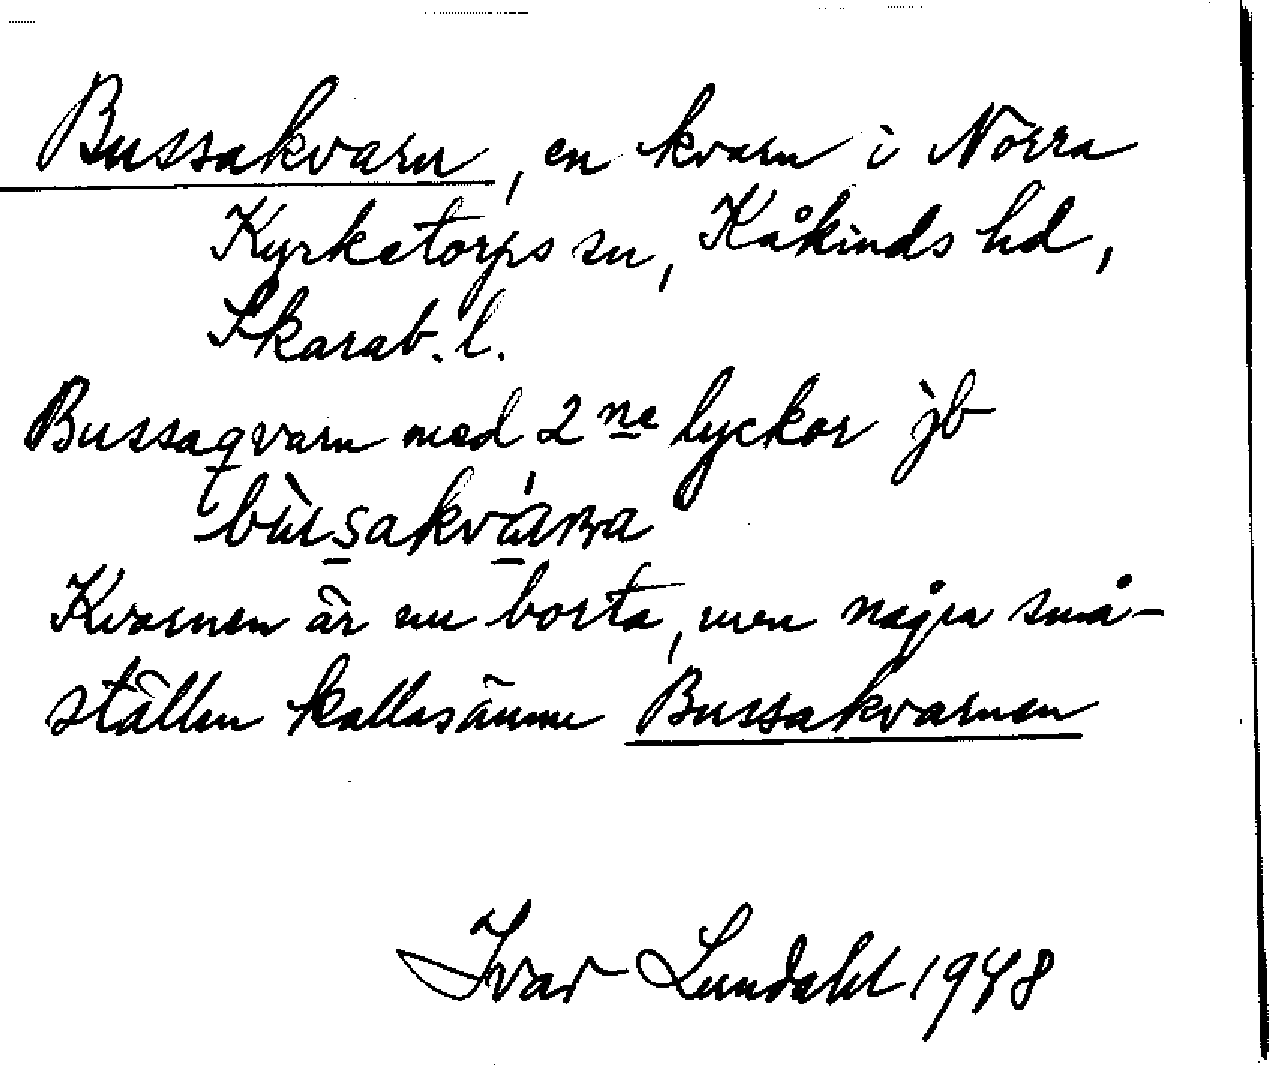 Bussakvarn, en kvarn i Norra
Kyrketorps sn, Kåkinds hd,
Skarab. l.
Bussaqvarn med 2ne lyckor jb
Kvarnen är nu borta, men några små-
ställen kallas ännu Bussakvarnen
Ivar Lundahl 1948